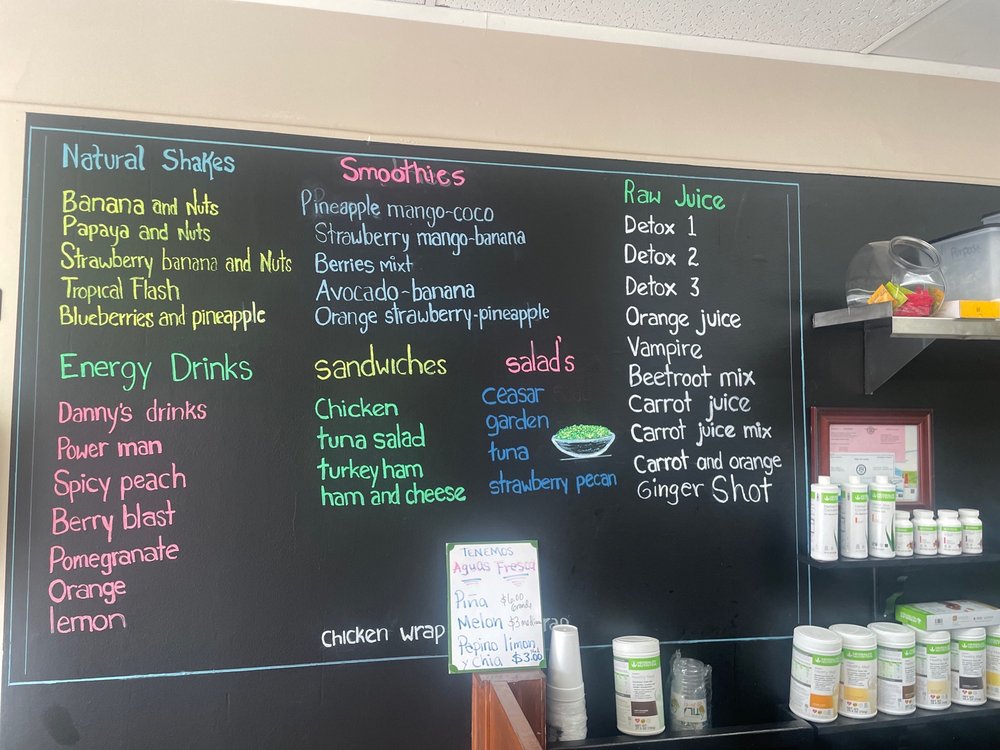 Natural Shakes
Banana and Nuts
Papaya and Nuts
Strawberry banana and Nuts
Tropical Flash
Blueberries and pineapple
Energy Drinks
Danny's drinks
Power man
Spicy peach
Berry blast
Pomegranate
Orange
lemon
Smoothies
Pineapple mango-coco
Strawberry mango-banana
Berries mixt
Avocado-banana
Orange strawberry-pineapple
sandwiches
Chicken
tuna salad
turkey ham
ham and cheese
salad's
ceasar
garden
tuna
strawberry pecan
Raw Juice
Detox 1
Detox 2
Detox 3
Orange juice
Vampire
Beetroot mix
Carrot juice
Carrot juice mix
Carrot and orange
Ginger Shot
Chicken wrap
TENEMOS
Aguas Fresca
Piña $6.00 Grande
Melon $3
Pepino limon
y Chia $3.00